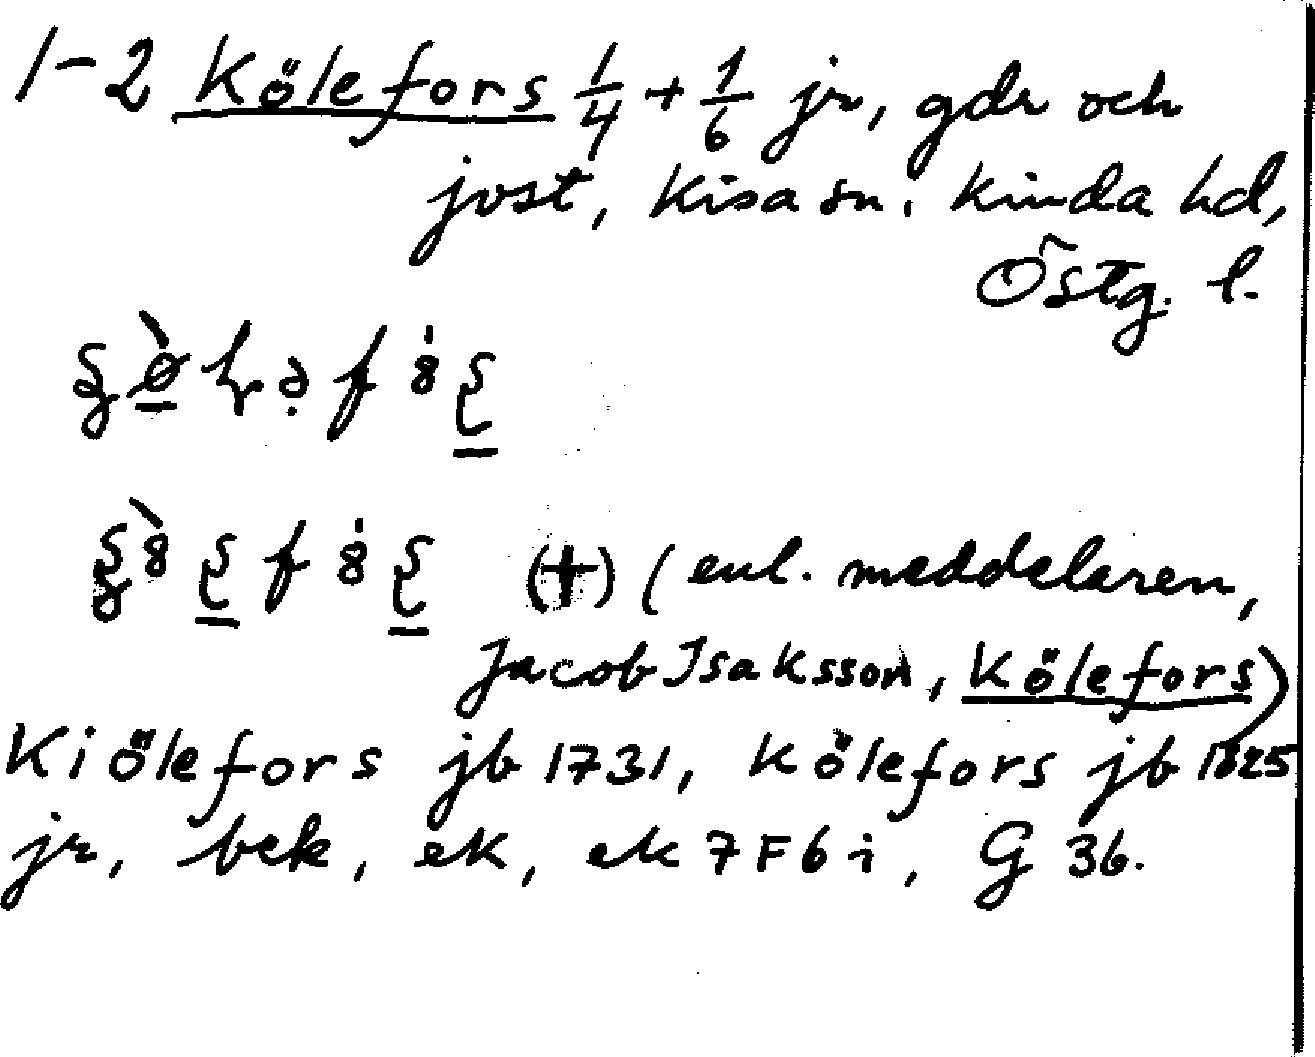 1-2 Kölefors 1/4 + 1/6 jr, gdr och
jvst, Kisa sn, Kinda hd,
Östg. l.
(+) (enl. meddelaren,
Jacob Isaksson, Kölefors)
Kiölefors jb 1731, Kölefors jb 1825
jr, bek, ek, ek 7F6i, G 36.